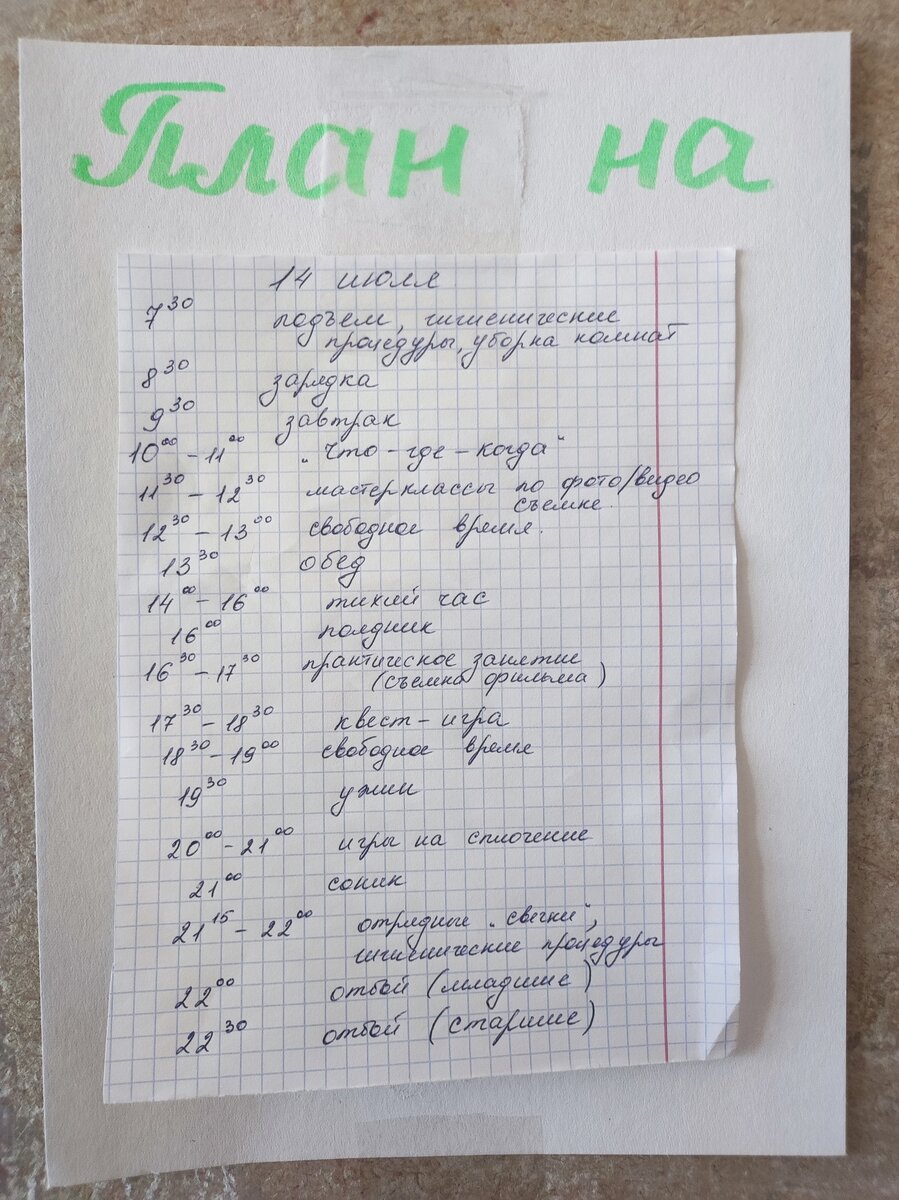 План на
14 июля
7³⁰ подъем, гигиенические
процедуры, уборка комнат
8³⁰ зарядка
9³⁰ завтрак
10⁰⁰ - 11⁰⁰ „Что - где - когда"
11³⁰ - 12³⁰ мастерклассы по фото/видео
съемке.
12³⁰ - 13⁰⁰ свободное время.
13³⁰ обед
14⁰⁰ - 16⁰⁰ тихий час
16⁰⁰ полдник
16³⁰ - 17³⁰ практическое занятие
(съемка фильма)
17³⁰ - 18³⁰ квест - игра
18³⁰ - 19⁰⁰ свободное время
19³⁰ ужин
20⁰⁰ - 21⁰⁰ игры на сплочение
21⁰⁰ соник
21¹⁵ - 22⁰⁰ отрядные „свечки",
гигиенические процедуры
22⁰⁰ отбой (младшие)
22³⁰ отбой (старшие)